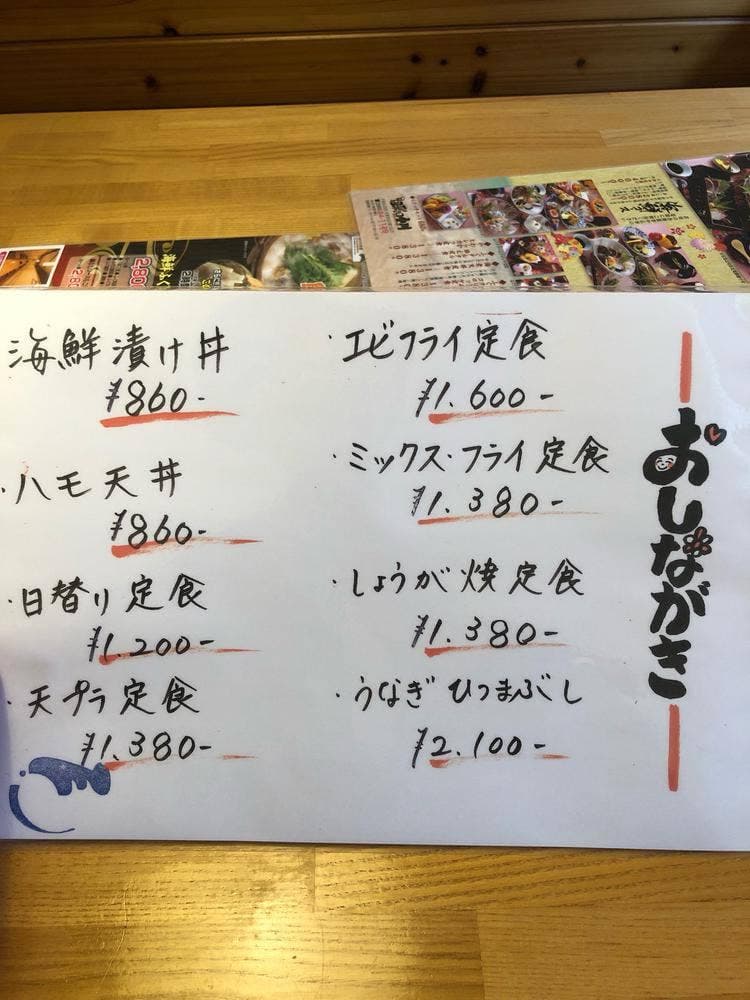 おしながき
・エビフライ定食
¥1.600-
・ミックス・フライ定食
¥1.380-
・しょうが焼定食
¥1.380-
・うなぎひつまぶし
¥2.100-
・海鮮漬け丼
¥860-
・ハモ天丼
¥860-
・日替り定食
¥1.200-
・天プラ定食
¥1.380-